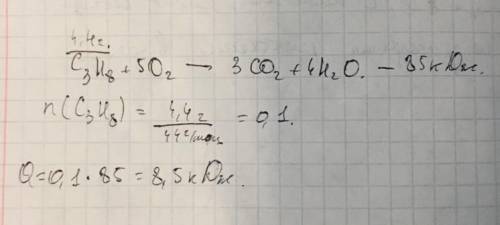 4,4г.
C₃H₈ + 5O₂ → 3CO₂ + 4H₂O. − 85 кДж.
n(C₃H₈) = 4,4г / 44г/моль = 0,1.
Q = 0,1 · 85 = 8,5 кДж.